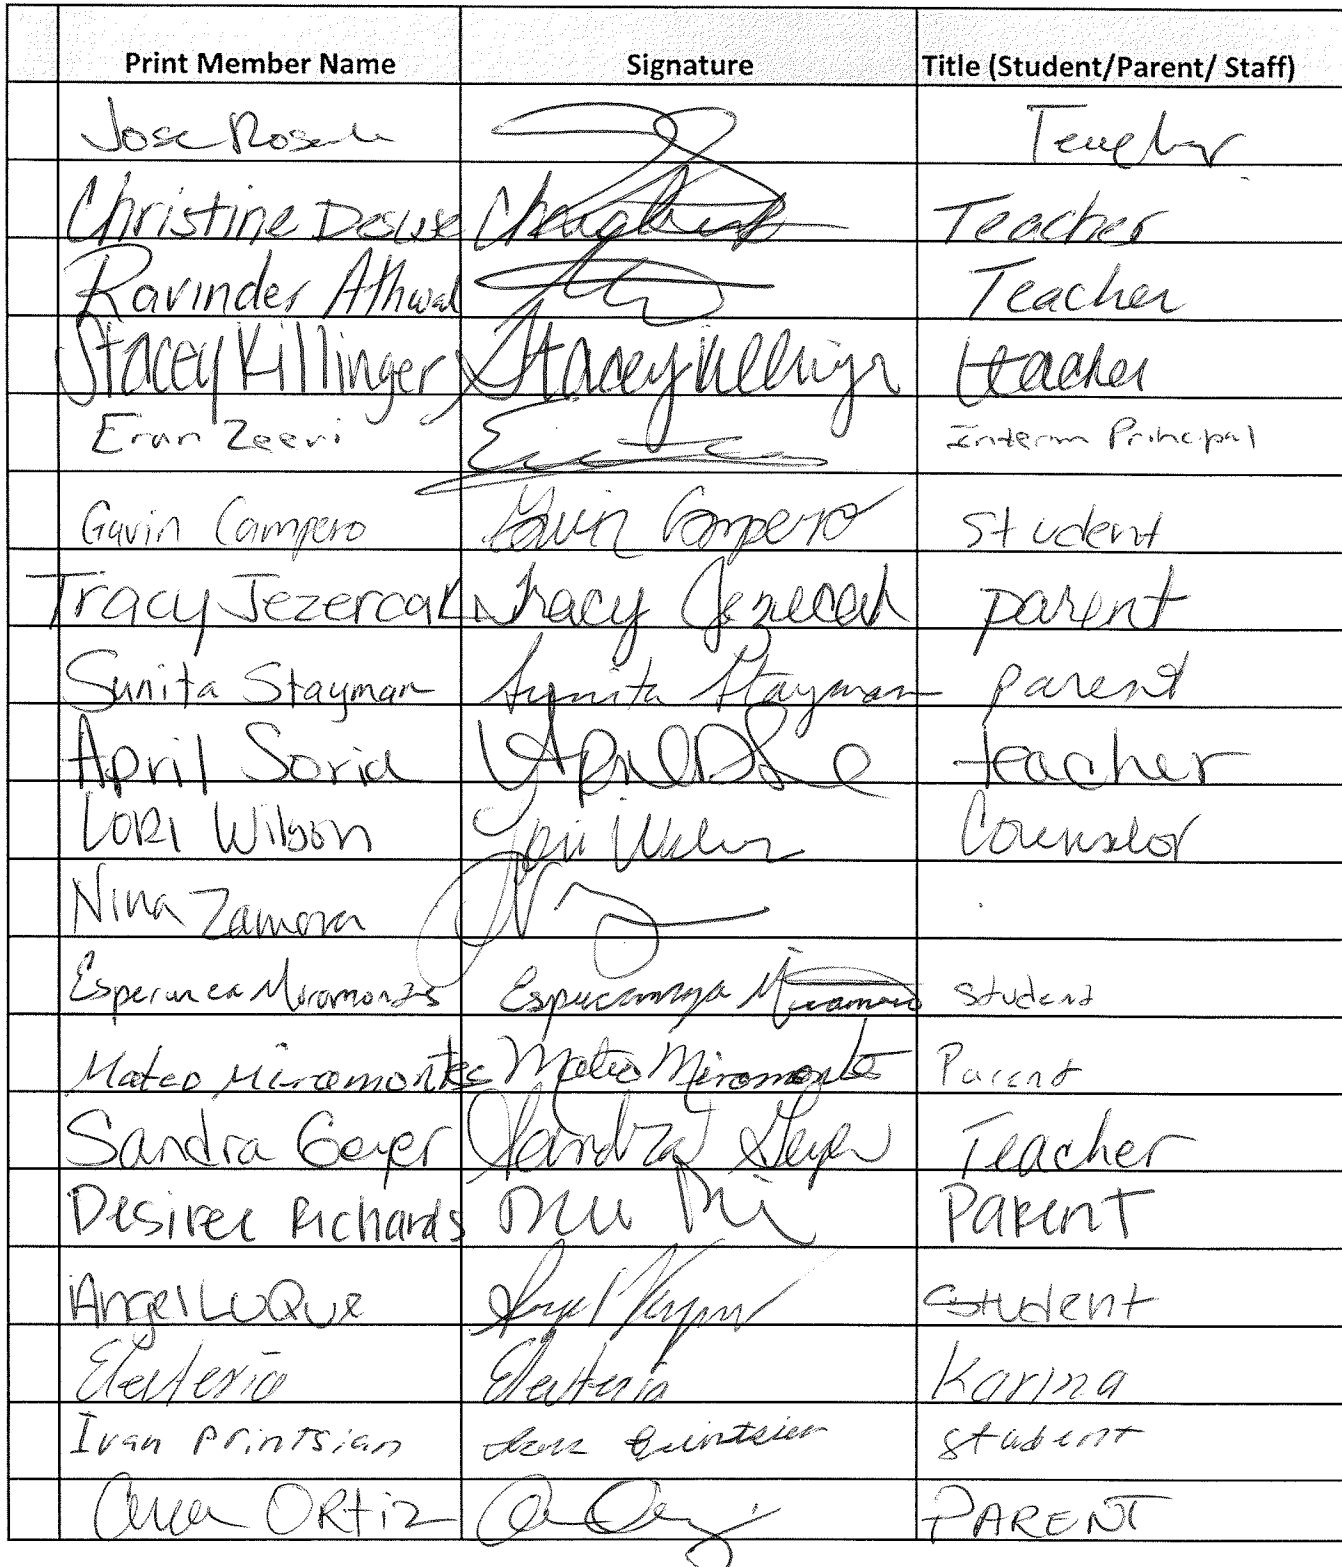 Print Member Name Signature Title (Student/Parent/ Staff)
Jose Teacher
Christine Teacher
Ravinder Athwal Teacher
Stacey Killinger Stacey Killinger teacher
Eran Zeevi Interim Principal
Gavin Campero Gavin Campero student
Tracy Jezercak Tracy Jezercak parent
Sunita Stayman Sunita Stayman parent
April Soria April teacher
LORI Wilson Lori Wilson Counselor
Nina Zamora
Miramontes student
Mateo Miramontes Mateo Miramontes Parent
Sandra Geyer Sandra Geyer Teacher
Desiree Richards Parent
Angel LuQue student
Eleuterio Eleuterio Karina
Ivan Printsian student
ORtiz PARENT